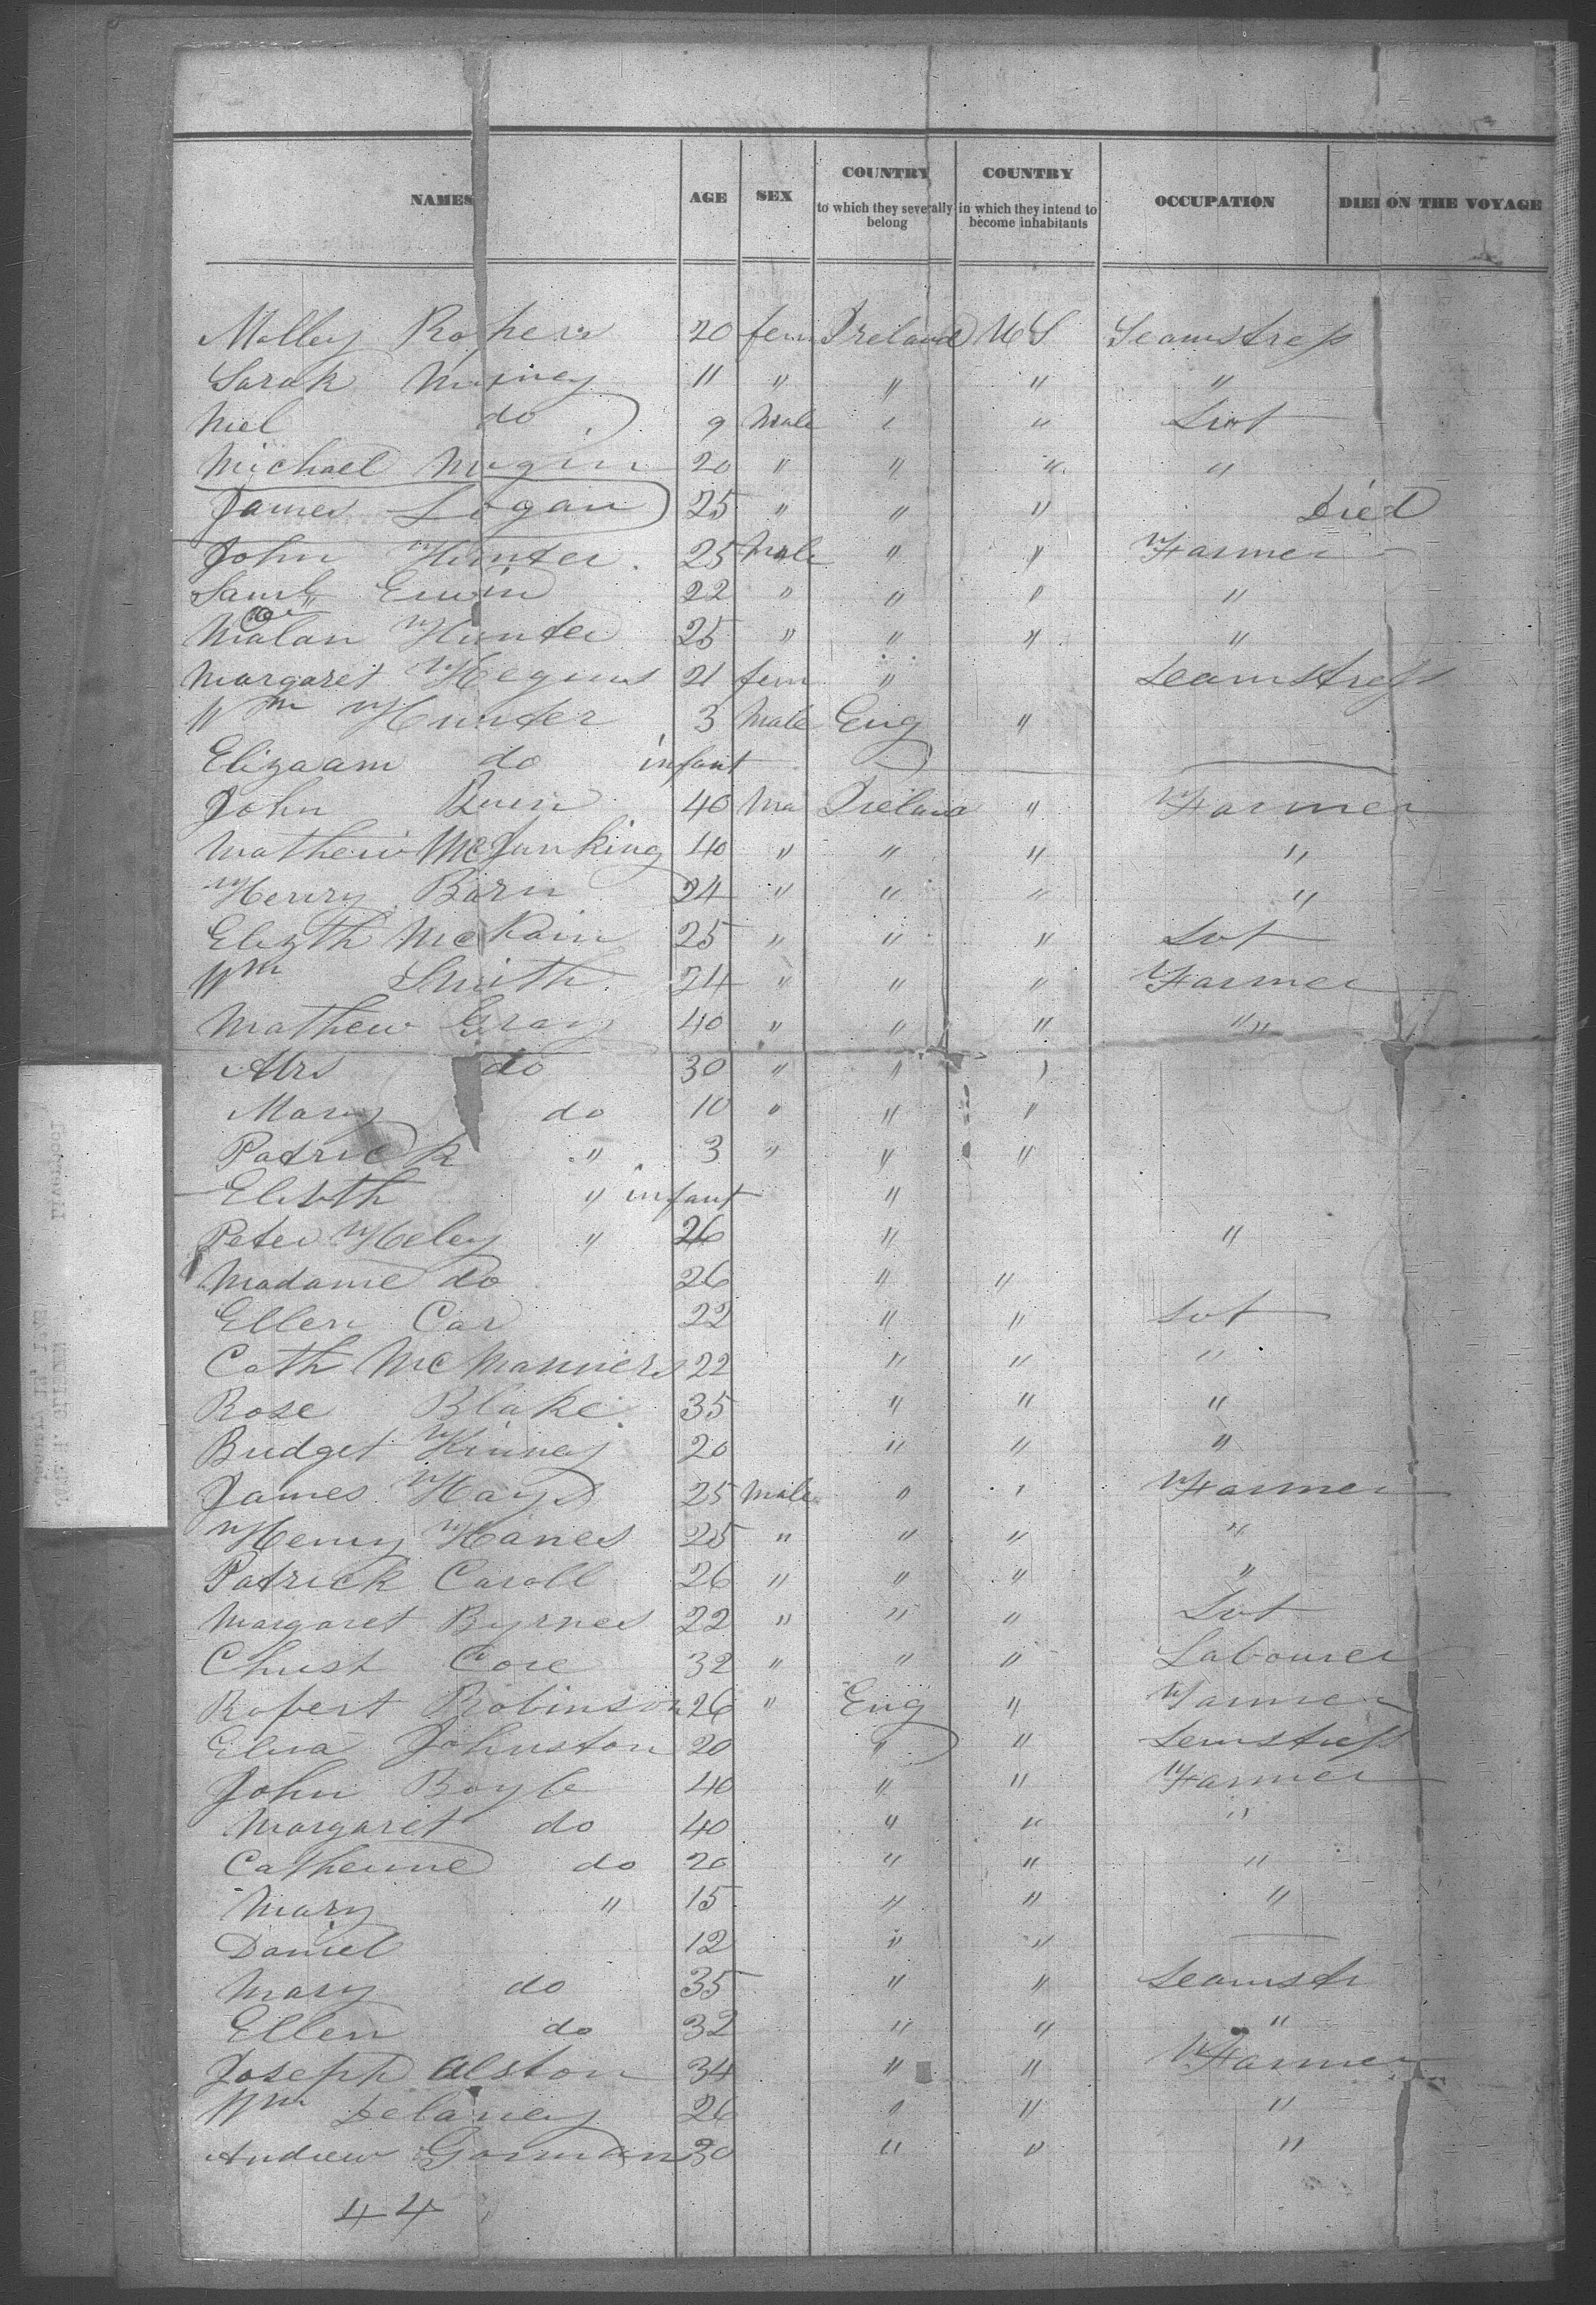 NAMES AGE SEX COUNTRY to which they severally belong COUNTRY in which they intend to become inhabitants OCCUPATION DIED ON THE VOYAGE
Molley 20 fem Ireland US Seamstress
Sarah 11 " " " "
Niel do 9 Male " " Svt
Michael 20 " " " "
James Logan 25 " " " Died
John Hunter 25 Male " " Farmer
Saml Erwin 22 " " " "
Hunter 25 " " " "
Margaret Hegins 21 fem " Seamstress
Wm Hunter 3 Male Eng "
Elizaam do infant
John 40 Ma Ireland " Farmer
Mathew McJunking 40 " " " "
Henry Barn 24 " " " "
Elizth McKain 25 " " " Svt
Wm Smith 24 " " " Farmer
Mathew Gray 40 " " " "
Mrs do 30 " " "
Mary do 10 " " "
Patrick " 3 " " "
Elizth " infant "
Peter Heley " 26 " "
Madame do 26 " "
Ellen Car 22 " " Svt
Cath McManners 22 " " "
Rose Blake 35 " " "
Bridget Kinney 20 " " "
James Hays 25 Male " " Farmer
Henry Hanes 25 " " " "
Patrick Caroll 26 " " " "
Margaret Byrnes 22 " " " Svt
Christ Core 32 " " " Labourer
Robert Robinson 26 " Eng " Farmer
Eliza Johnston 20 " " Semstress
John Boyle 40 " " Farmer
Margaret do 40 " " "
Catherine do 20 " " "
Mary " 15 " " "
Daniel 12 " "
Mary do 35 " " Seamstr
Ellen do 32 " " "
Joseph Alston 34 " " Farmer
Wm Delaney 26 " " "
Andrew Gorman 30 " " "
44